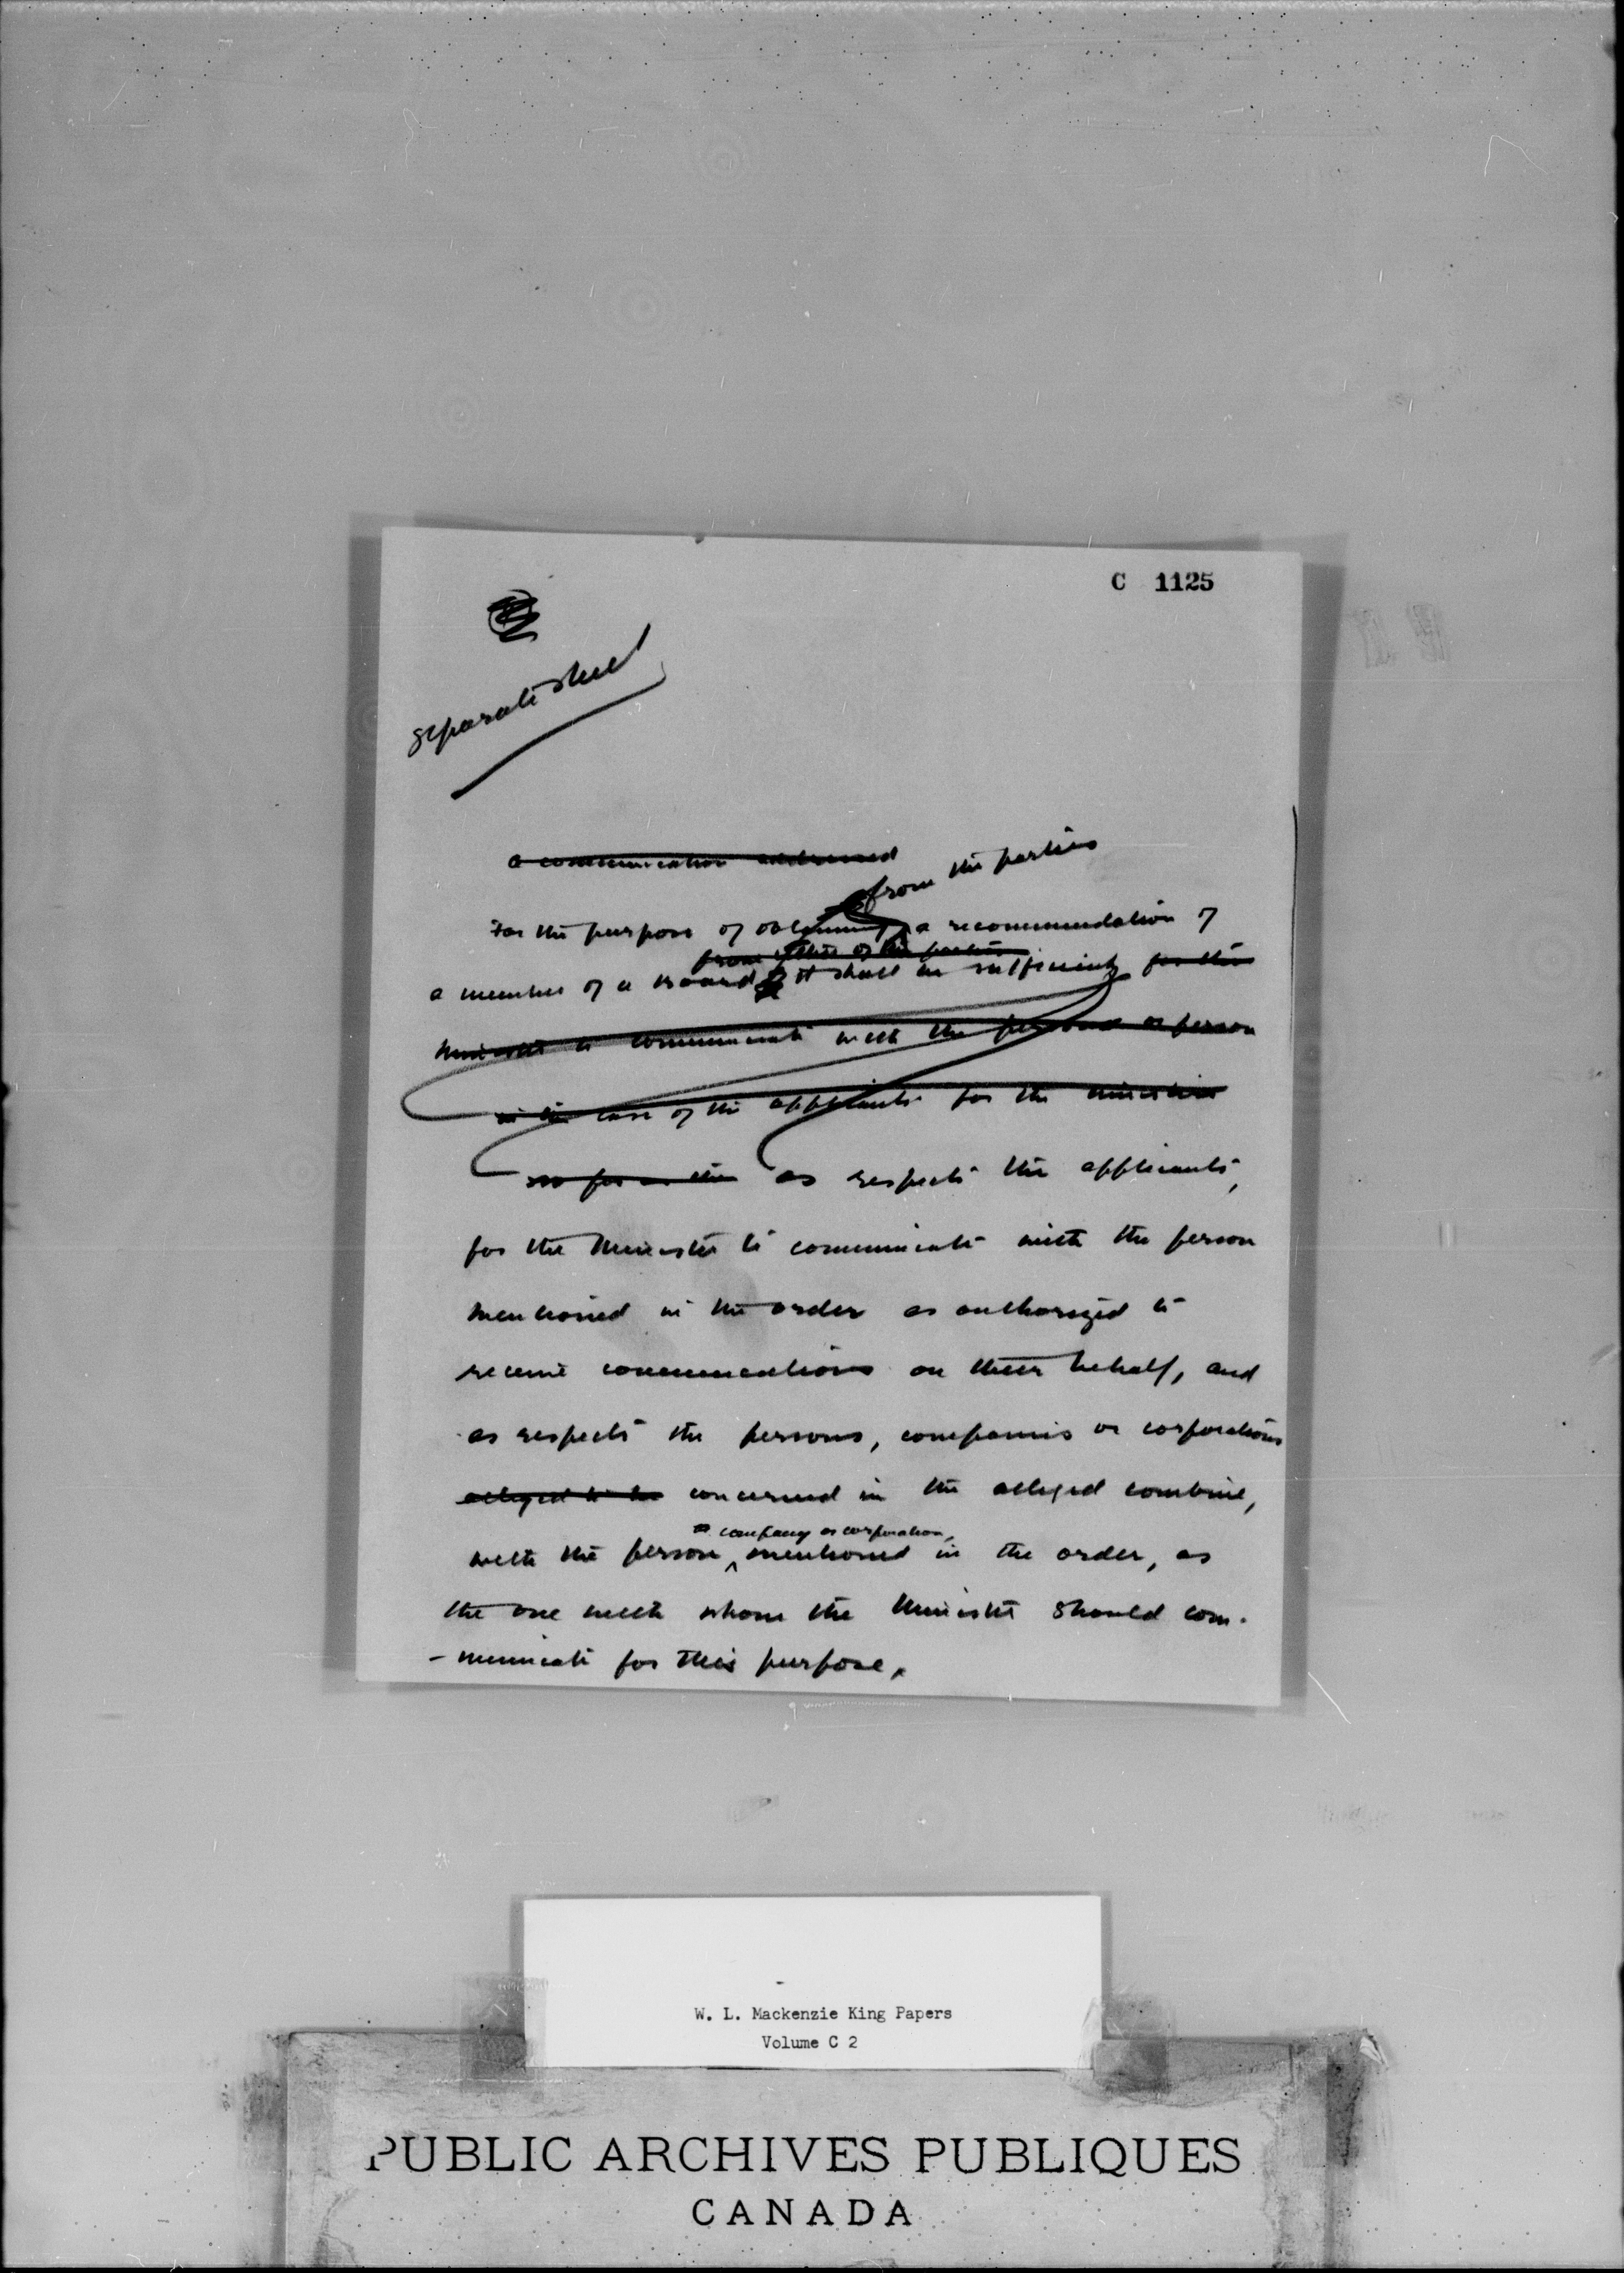 C 1125
separate sheet
a communication addressed
from the parties
For the purpose of obtaining a recommendation of
from either of the parties
a member of a Board it shall be sufficient for the
Minister to communicate with the person or person
in the case of the applicants for the minister
so far as the as respects the applicants,
for the Minister to communicate with the person
mentioned in the order as authorized to
receive communications on their behalf, and
as respects the persons, companies or corporations
alleged to be concerned in the alleged combine,
company or corporation,
with the person mentioned in the order, as
the one with whom the Minister should com-
-municate for this purpose.
W. L. Mackenzie King Papers
Volume C 2
PUBLIC ARCHIVES PUBLIQUES
CANADA